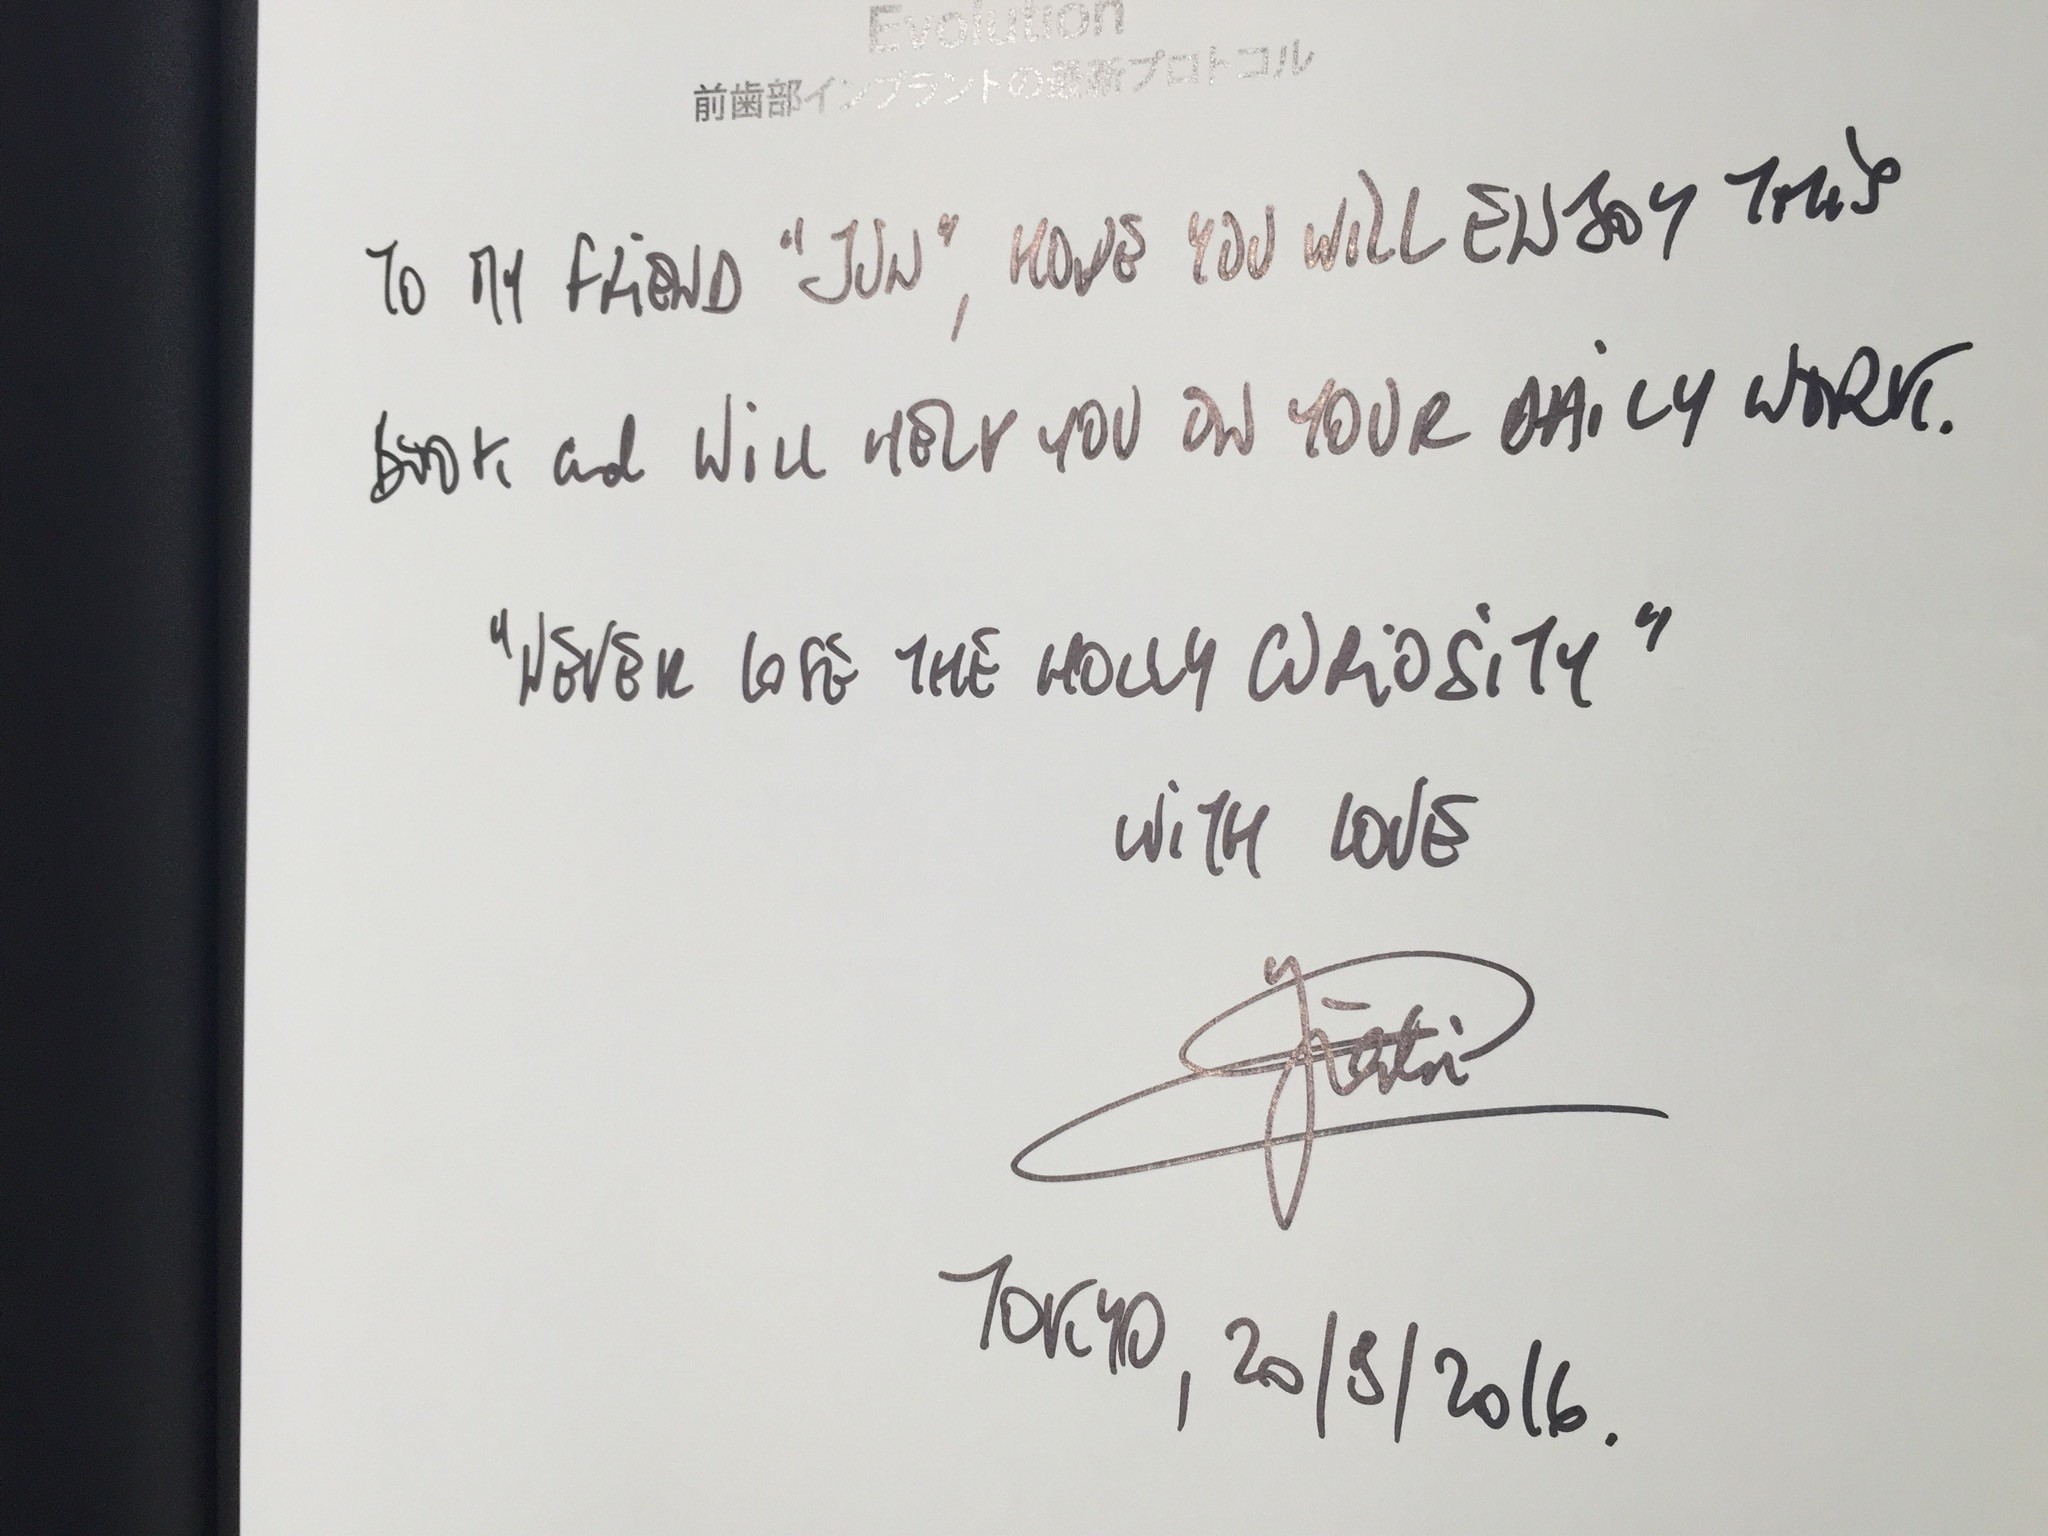 Evolution
前歯部インプラントの最新プロトコル
TO MY FRIEND "JUN", HOPE YOU WILL ENJOY THIS
BOOK and WILL HELP YOU ON YOUR DAILY WORK.
"NEVER LOSE THE HOLLY CURIOSITY"
WITH LOVE
TOKYO, 20/3/2016.